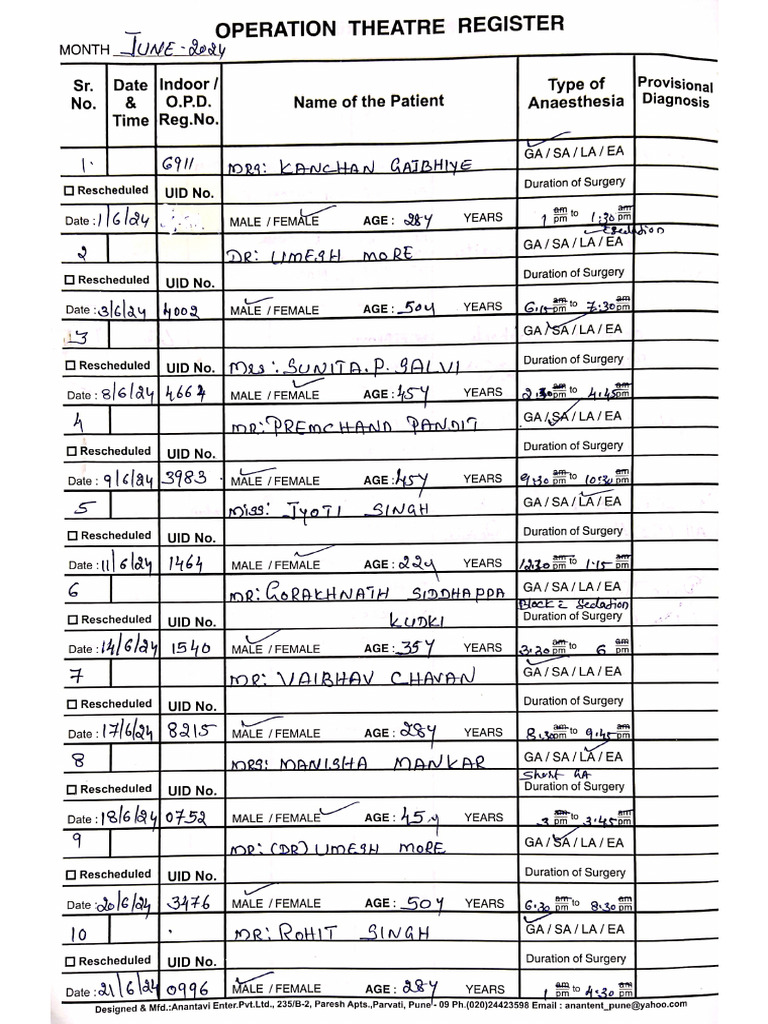 OPERATION THEATRE REGISTER
MONTH JUNE-2024
Sr. No. Date & Time Indoor / O.P.D. Reg.No. Name of the Patient Type of Anaesthesia Provisional Diagnosis
1. 6911 MRS: KANCHAN GAIBHIYE GA / SA / LA / EA
Rescheduled UID No. Duration of Surgery
Date : 1/6/24 MALE / FEMALE AGE : 28y YEARS 1 am pm to 1:30 am pm
2 DR: UMESH MORE GA / SA / LA / EA
Rescheduled UID No. Duration of Surgery
Date : 3/6/24 4002 MALE / FEMALE AGE : 50y YEARS 6.15 am pm to 7:30 am pm
3 GA / SA / LA / EA
Rescheduled UID No. MRS: SUNITA.P. SALVI Duration of Surgery
Date : 8/6/24 4664 MALE / FEMALE AGE : 45y YEARS 2.30 am pm to 4.45 am pm
4 MR: PREMCHAND PANDIT GA / SA / LA / EA
Rescheduled UID No. Duration of Surgery
Date : 9/6/24 3983 MALE / FEMALE AGE : 45y YEARS 9:30 am pm to 10:30 am pm
5 MISS: JYOTI SINGH GA / SA / LA / EA
Rescheduled UID No. Duration of Surgery
Date : 11/6/24 1464 MALE / FEMALE AGE : 22y YEARS 12:30 am pm to 1.15 am pm
6 MR: GORAKHNATH SIDDHAPPA GA / SA / LA / EA
Block Sedation
Rescheduled UID No. KUDKI Duration of Surgery
Date : 14/6/24 1540 MALE / FEMALE AGE : 35y YEARS 3:30 am pm to 6 am pm
7 MR: VAIBHAV CHAVAN GA / SA / LA / EA
Rescheduled UID No. Duration of Surgery
Date : 17/6/24 8215 MALE / FEMALE AGE : 28y YEARS 8.30 am pm to 9.45 am pm
8 MRS: MANISHA MANKAR GA / SA / LA / EA
Short GA
Rescheduled UID No. Duration of Surgery
Date : 18/6/24 0752 MALE / FEMALE AGE : 45y YEARS 3 am pm to 3.45 am pm
9 MR: (DR) UMESH MORE GA / SA / LA / EA
Rescheduled UID No. Duration of Surgery
Date : 20/6/24 3476 MALE / FEMALE AGE : 50y YEARS 6.30 am pm to 8.30 am pm
10 MR: ROHIT SINGH GA / SA / LA / EA
Rescheduled UID No. Duration of Surgery
Date : 21/6/24 0996 MALE / FEMALE AGE : 28y YEARS 1 am pm to 4.30 am pm
Designed & Mfd.:Anantavi Enter.Pvt.Ltd., 235/B-2, Paresh Apts.,Parvati, Pune - 09 Ph.(020)24423598 Email : anantent_pune@yahoo.com